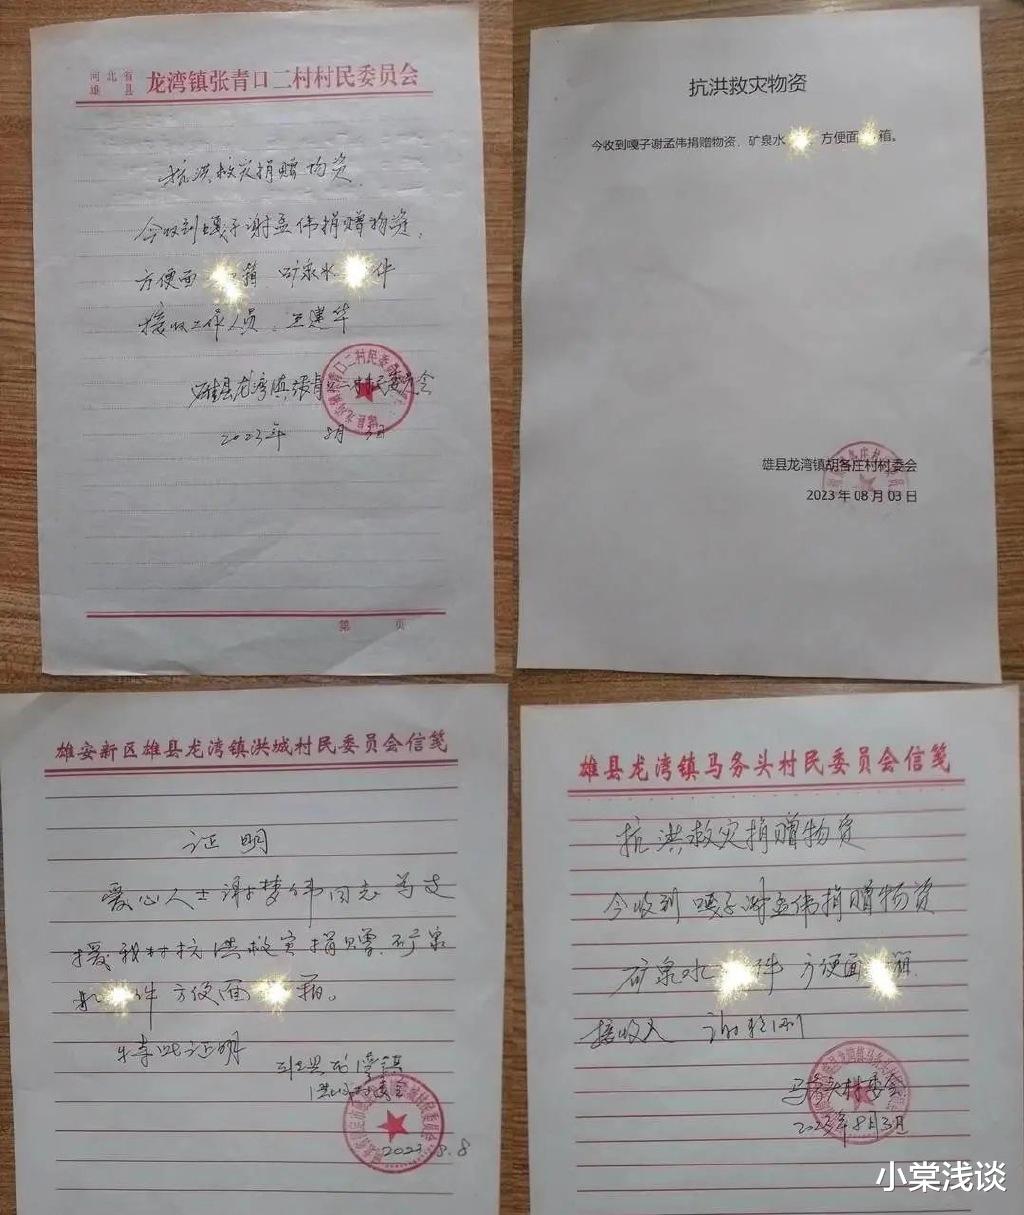 河北省
雄县
龙湾镇张青口二村村民委员会
抗洪救灾捐赠物资
今收到嘎子谢孟伟捐赠物资,
方便面 箱、矿泉水 件
接收工作人员:王建华
雄县龙湾镇张青口二村村民委员会
2023年 8月3日
第 页
抗洪救灾物资
今收到嘎子谢孟伟捐赠物资,矿泉水 方便面 箱。
雄县龙湾镇胡各庄村村委会
2023年08月03日
雄安新区雄县龙湾镇洪城村民委员会信笺
证明
爱心人士谢梦伟同志为支
援我村抗洪救灾捐赠矿泉
水 件 方便面 箱。
特此证明
龙湾镇
洪城村委会
2023.8.8
雄县龙湾镇马务头村民委员会信笺
抗洪救灾捐赠物资
今收到嘎子谢孟伟捐赠物资
矿泉水 件 方便面 箱.
接收人 谢
马务头村委会
2023年8月3日
小棠浅谈